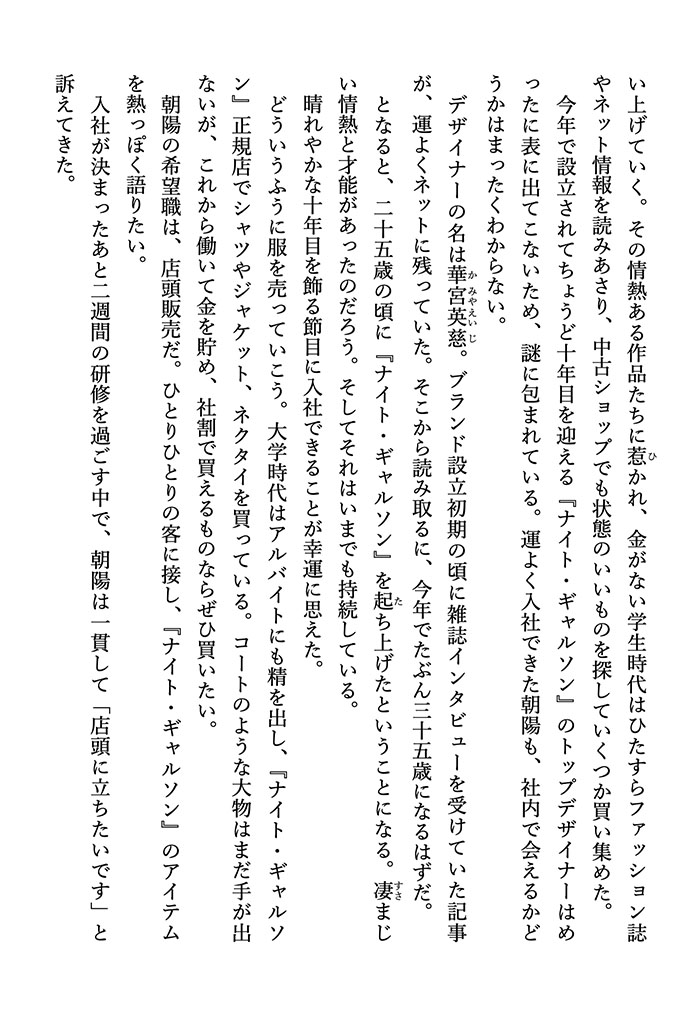 い上げていく。その情熱ある作品たちに惹かれ、金がない学生時代はひたすらファッション誌
やネット情報を読みあさり、中古ショップでも状態のいいものを探していくつか買い集めた。
今年で設立されてちょうど十年目を迎える『ナイト・ギャルソン』のトップデザイナーはめ
ったに表に出てこないため、謎に包まれている。運よく入社できた朝陽も、社内で会えるかど
うかはまったくわからない。
デザイナーの名は華宮英慈。ブランド設立初期の頃に雑誌インタビューを受けていた記事
が、運よくネットに残っていた。そこから読み取るに、今年でたぶん三十五歳になるはずだ。
となると、二十五歳の頃に『ナイト・ギャルソン』を起ち上げたということになる。凄まじ
い情熱と才能があったのだろう。そしてそれはいまでも持続している。
晴れやかな十年目を飾る節目に入社できることが幸運に思えた。
どういうふうに服を売っていこう。大学時代はアルバイトにも精を出し、『ナイト・ギャルソ
ン』正規店でシャツやジャケット、ネクタイを買っている。コートのような大物はまだ手が出
ないが、これから働いて金を貯め、社割で買えるものならぜひ買いたい。
朝陽の希望職は、店頭販売だ。ひとりひとりの客に接し、『ナイト・ギャルソン』のアイテム
を熱っぽく語りたい。
入社が決まったあと二週間の研修を過ごす中で、朝陽は一貫して「店頭に立ちたいです」と
訴えてきた。